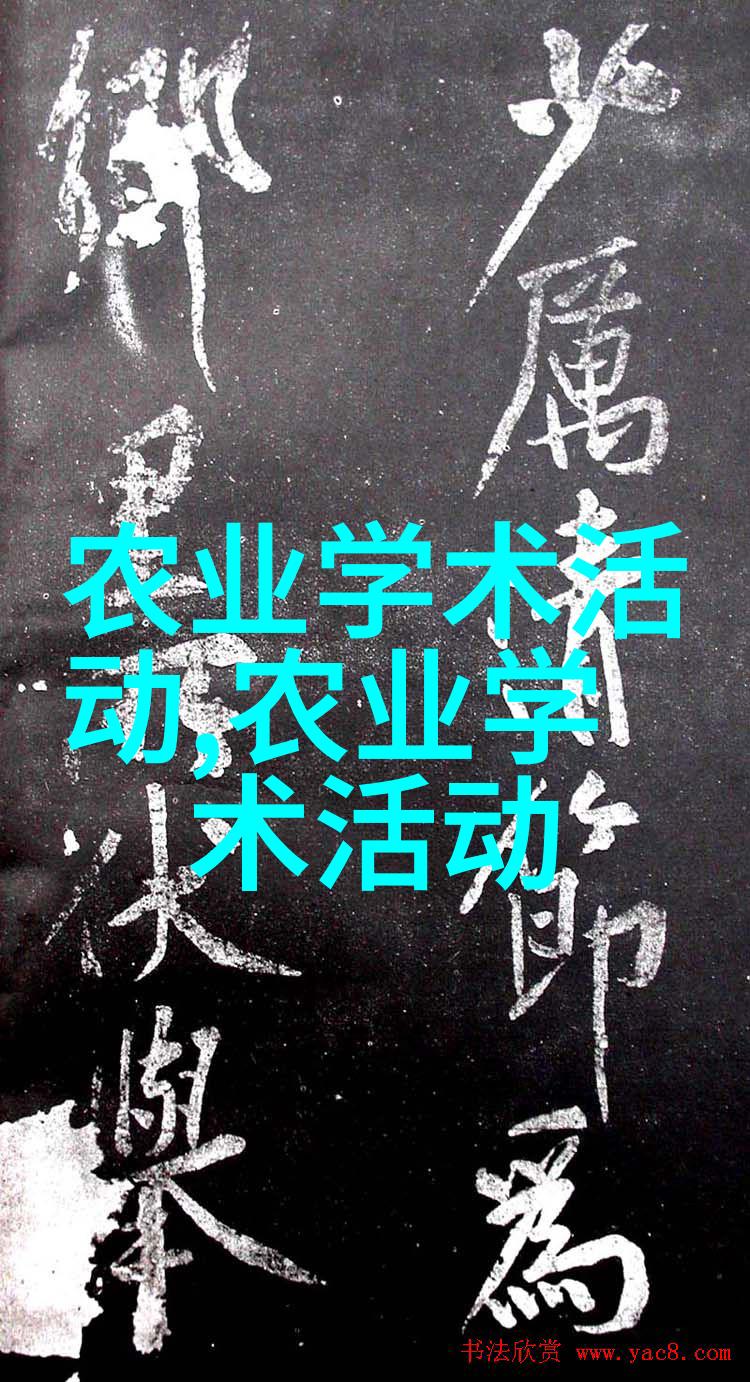 少厲清節為
鄉里所伏舉
农业学术活
动,农业学
术活动
书法欣赏 www.yac8.com